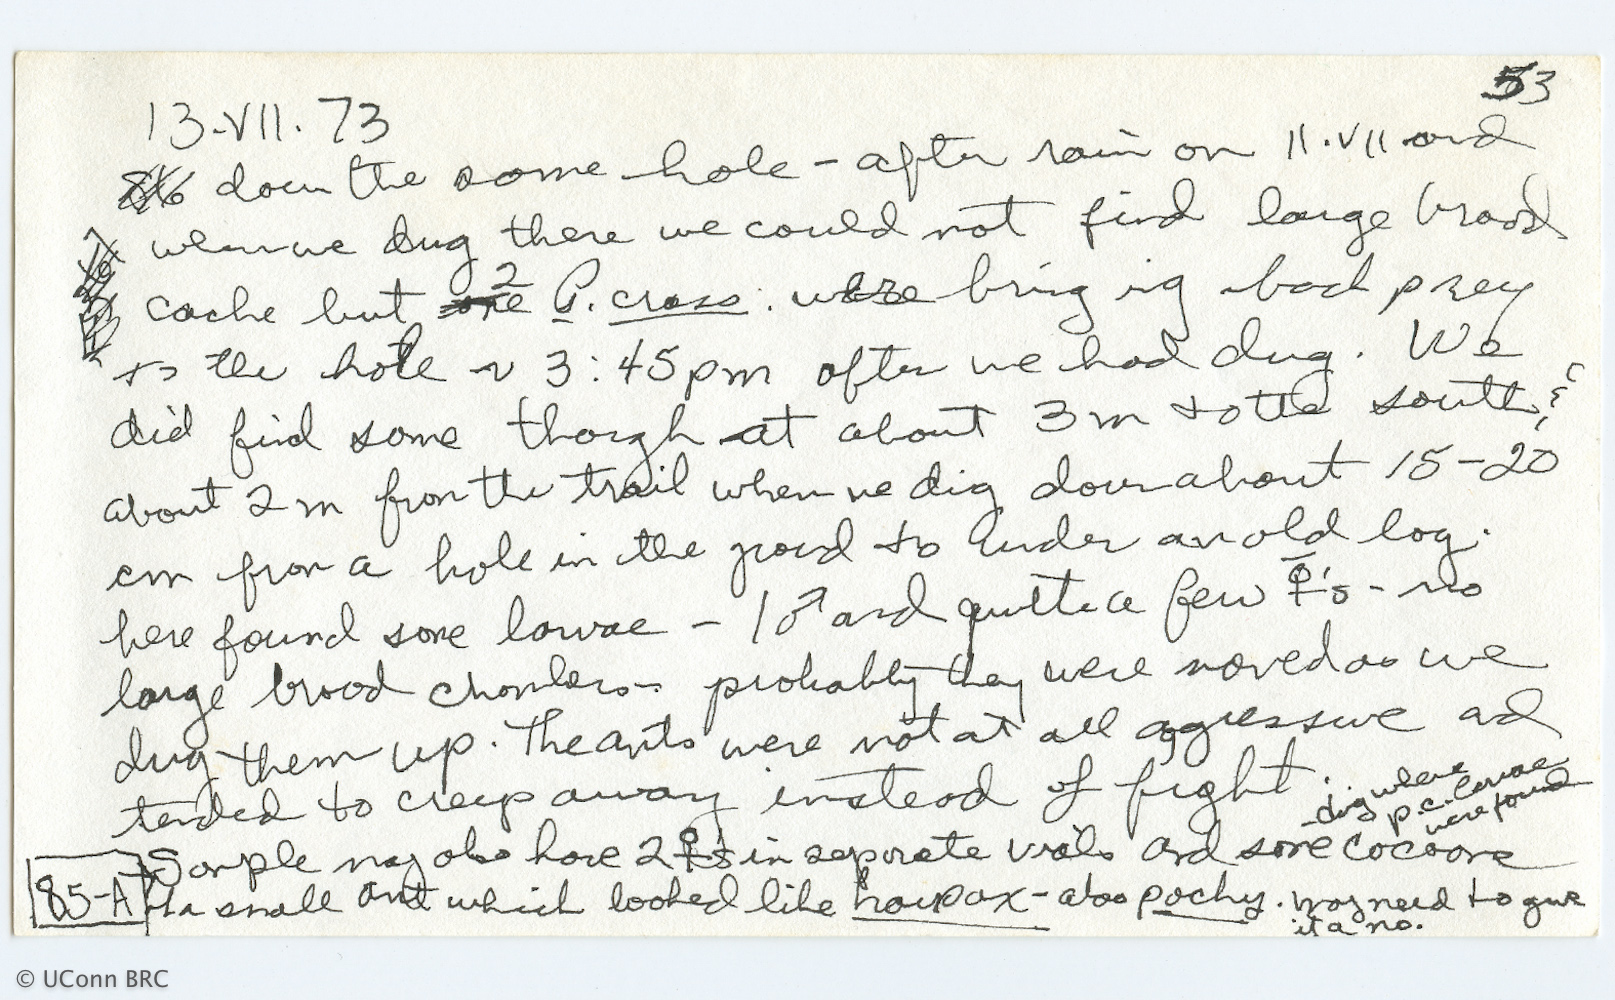 53
13.VII.73
down the same hole - after rain on 11.VII and
when we dug there we could not find large brood
cache but 2 P. crass. were bring ing back prey
to the hole ~ 3:45pm after we had dug. We
did find some though at about 3m to the south &
about 2m from the trail when we dig down about 15-20
cm from a hole in the groud to under an old log.
here found some larvae - 1♂ and quite a few ♀'s - no
large brood chambers - probably they were moved as we
dug them up. The ants were not at all aggressive ad
tended to creep away instead of fight.
- dig where
p.c. larvae
were found
Sample may also have 2 ♀'s in separate vials and some cocoons
85-A
small ant which looked like hairpax - also pachy. may need to give
it a no.
© UConn BRC